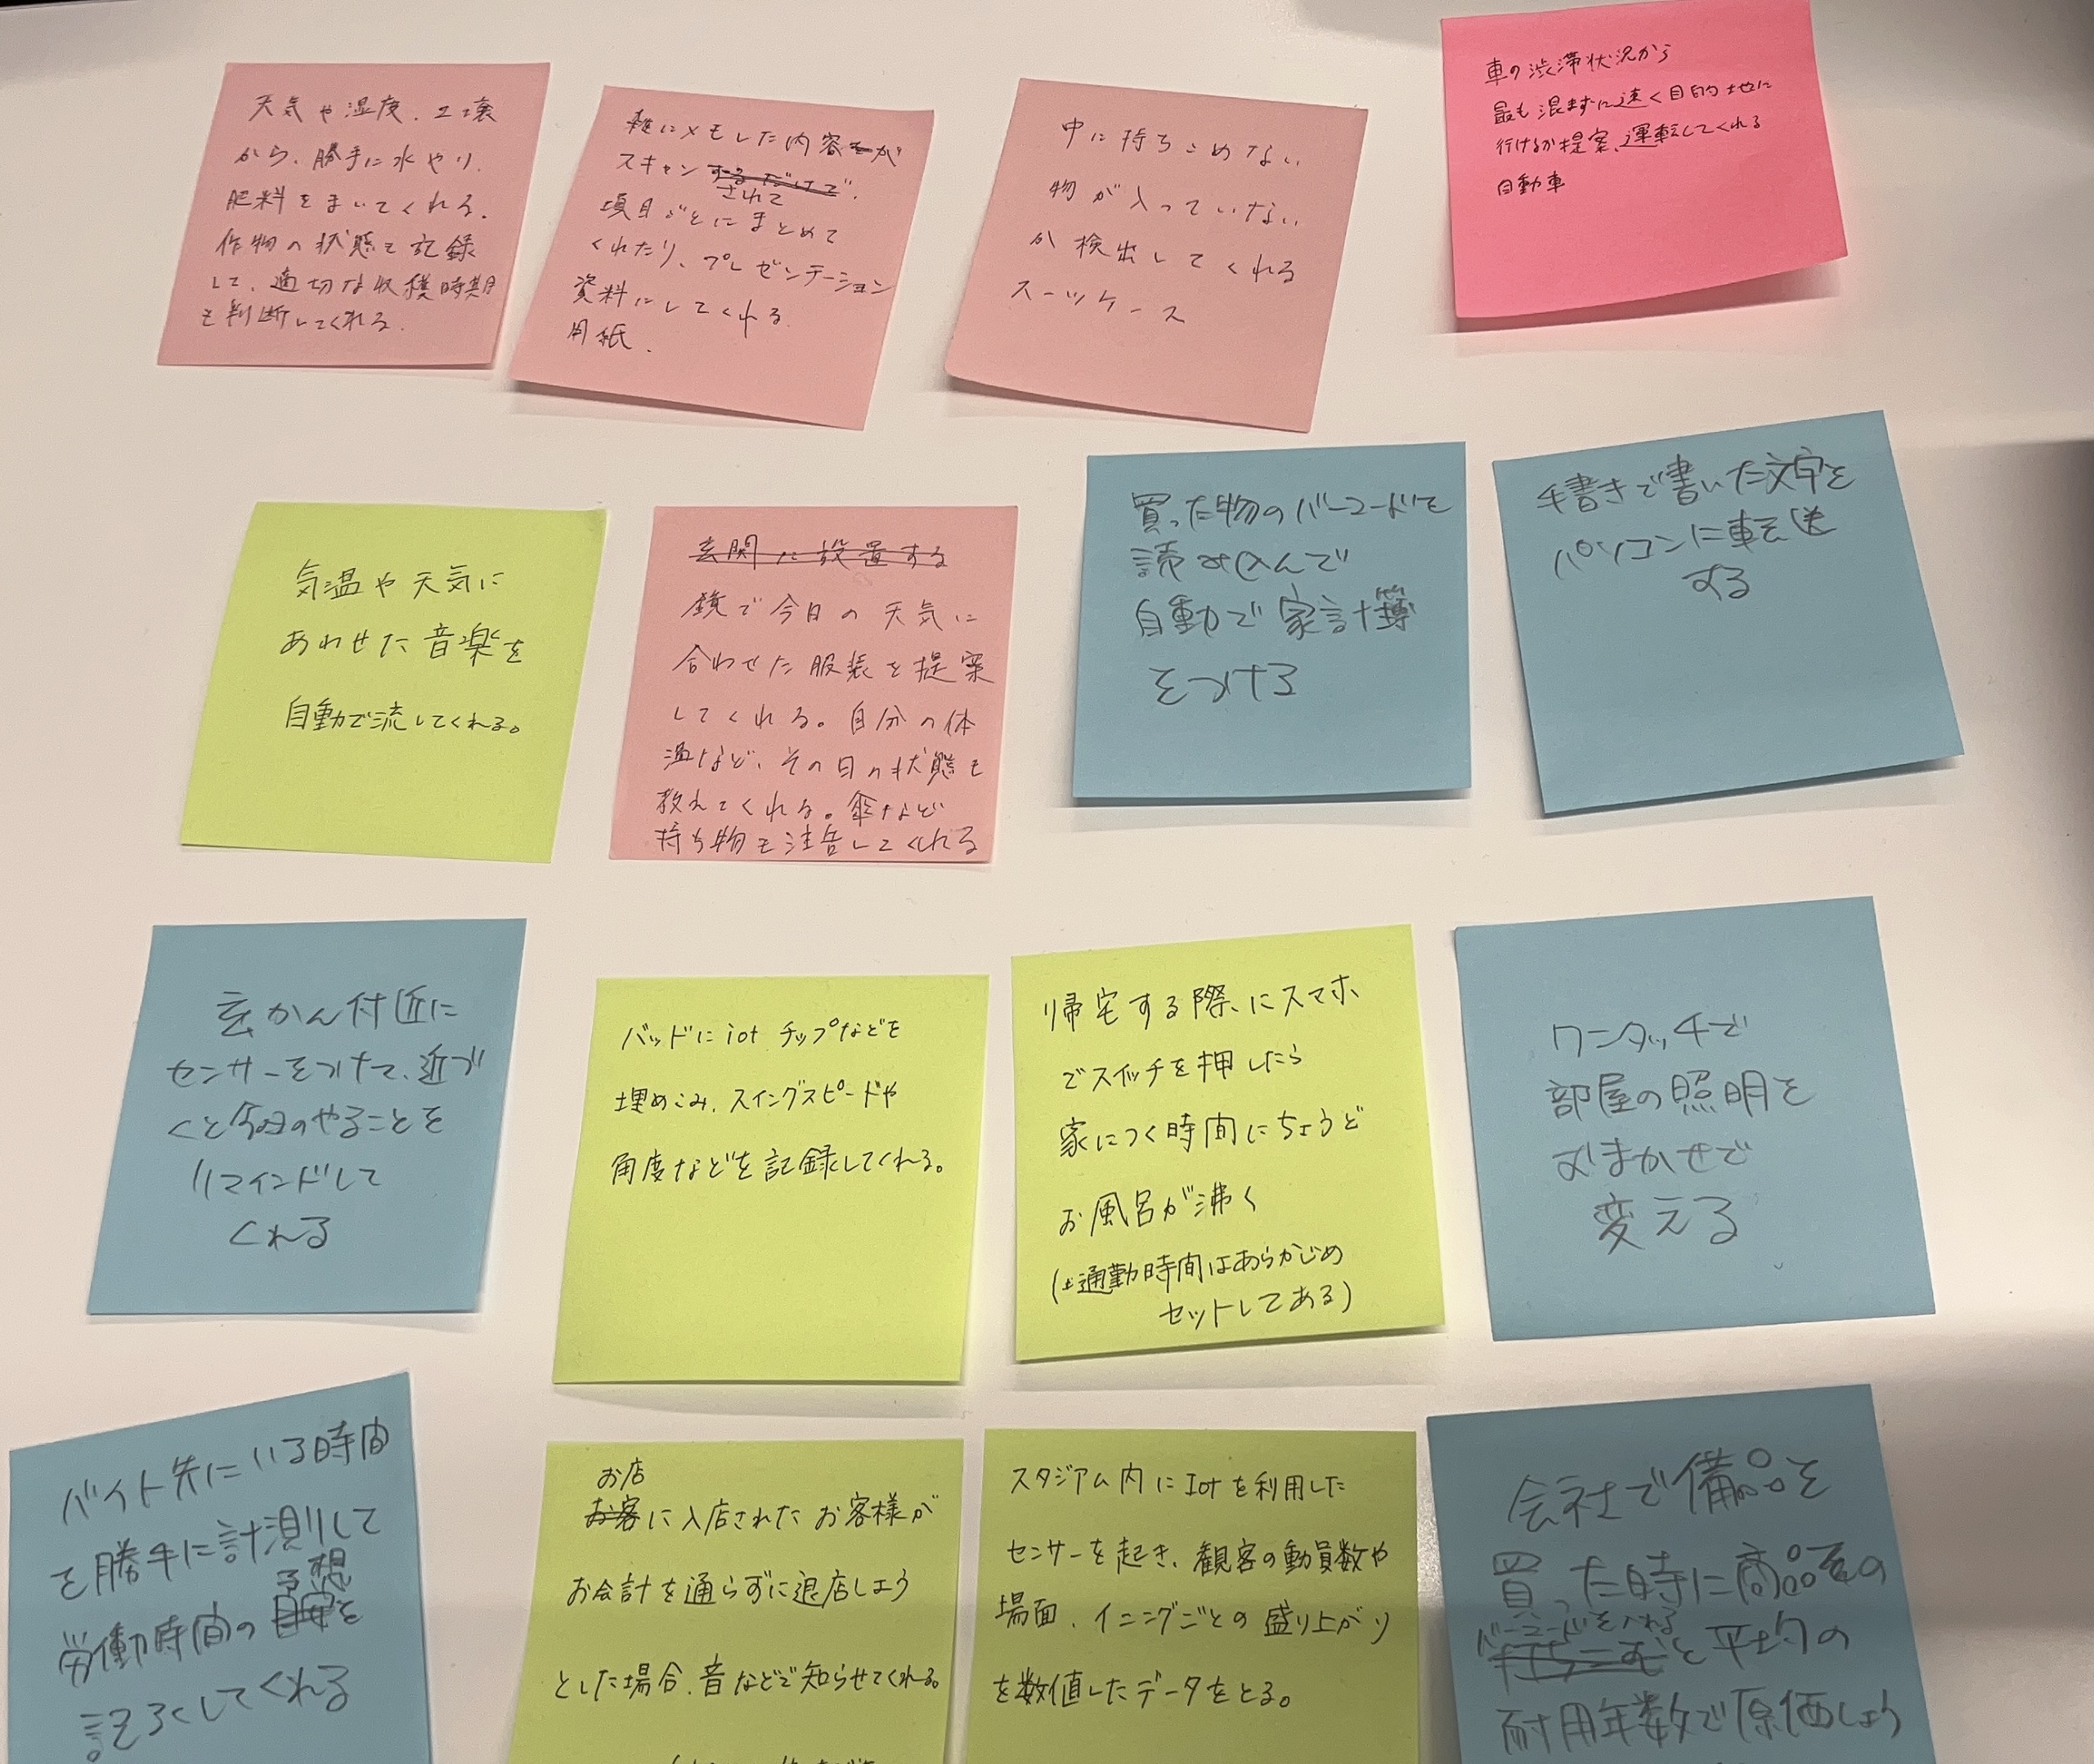 天気や湿度、土壌
から、勝手に水やり、
肥料をまいてくれる。
作物の状態も記録
して、適切な収穫時期
も判断してくれる。
雑にメモした内容が
スキャンされて
項目ごとにまとめて
くれたり、プレゼンテーション
資料にしてくれる
用紙。
中に持ちこめない
物が入っていない
か検出してくれる
スーツケース
車の渋滞状況から
最も混まずに速く目的地に
行けるか提案、運転してくれる
自動車
気温や天気に
あわせた音楽を
自動で流してくれる。
玄関に設置する
鏡で今日の天気に
合わせた服装を提案
してくれる。自分の体
温など、その日の状態も
教えてくれる。傘など
持ち物も注告してくれる
買った物のバーコードを
読み込んで
自動で家計簿
をつける
手書きで書いた文字を
パソコンに転送
する
玄かん付近に
センサーをつけて、近づ
くと今日のやることを
リマインドして
くれる
バッドにiotチップなどを
埋めこみ、スイングスピードや
角度などを記録してくれる。
帰宅する際にスマホ
でスイッチを押したら
家につく時間にちょうど
お風呂が沸く
(通勤時間はあらかじめ
セットしてある)
ワンタッチで
部屋の照明を
おまかせで
変える
バイト先にいる時間
を勝手に計測して
労働時間の予想を
記ろくしてくれる
お店
お客に入店されたお客様が
お会計を通らずに退店しよう
とした場合、音などで知らせてくれる。
スタジアム内にIotを利用した
センサーを起き、観客の動員数や
場面、イニングごとの盛り上がり
を数値したデータをとる。
会社で備品を
買った時に商品名の
バーコードを入れる
と平均の
耐用年数で原価しょう